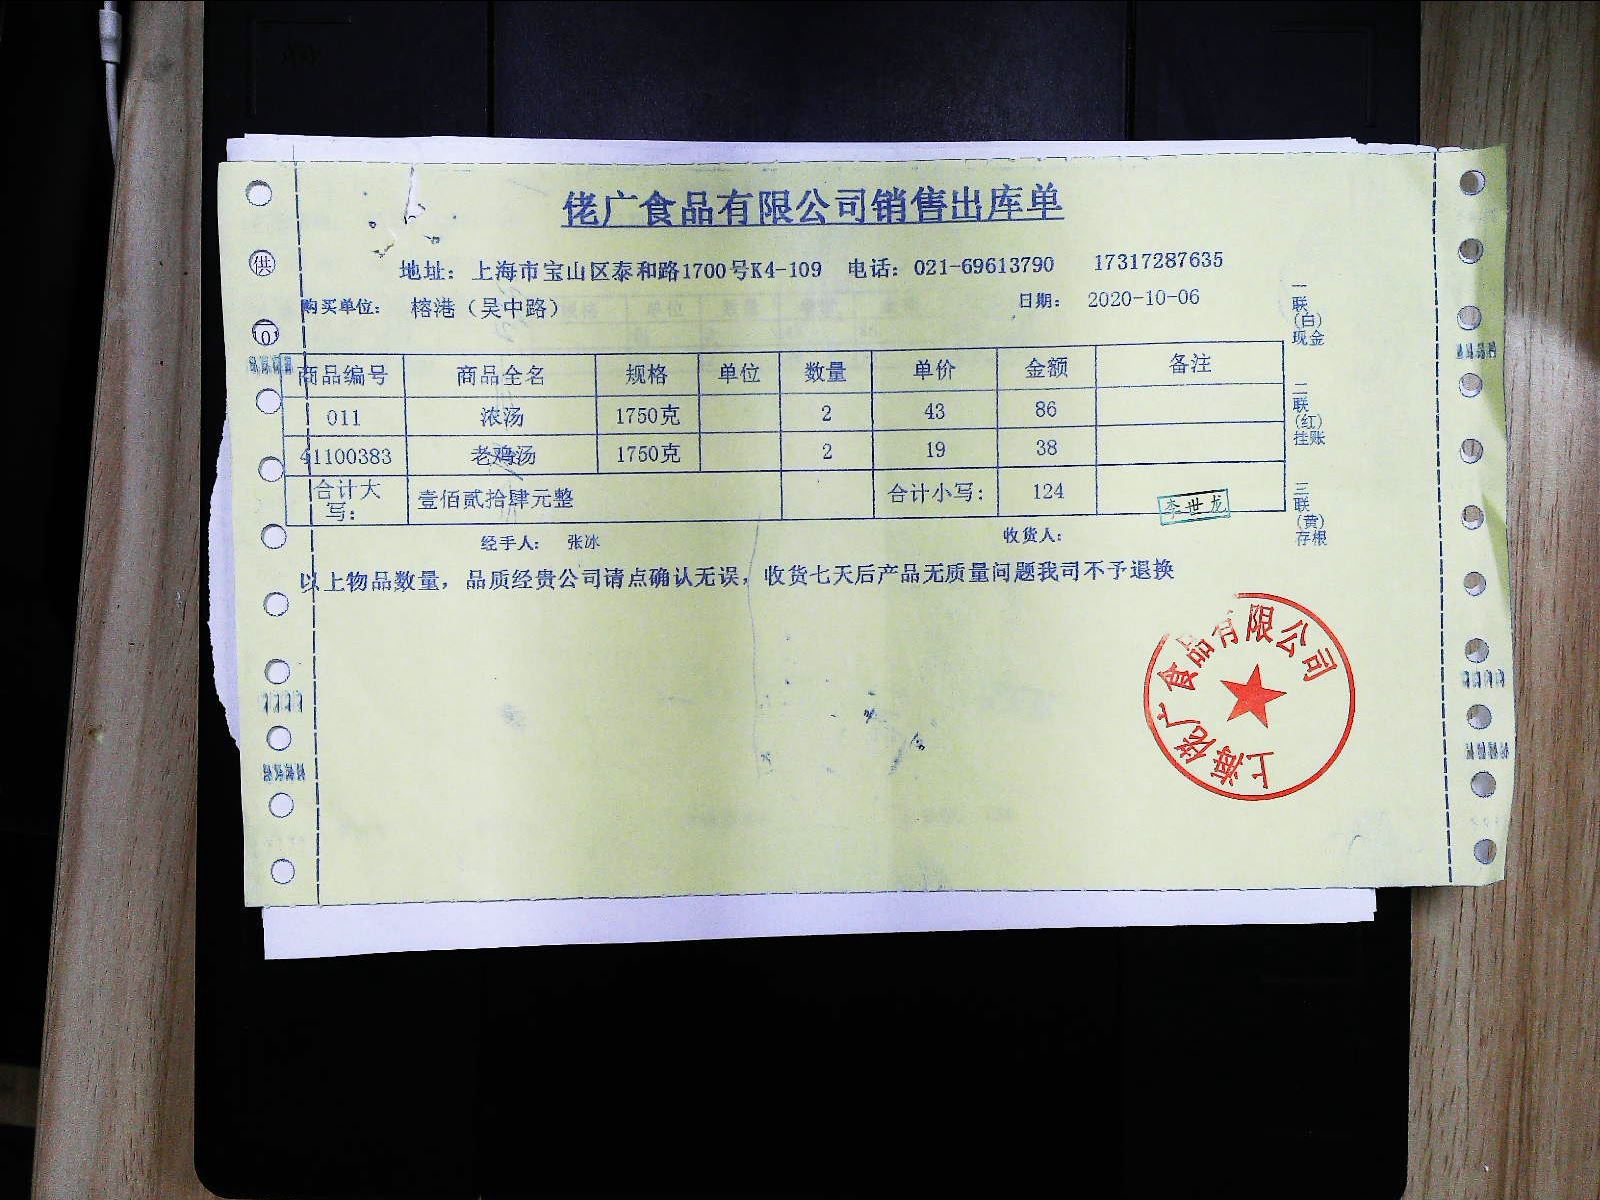 佬广食品有限公司销售出库单
地址：上海市宝山区泰和路1700号K4-109 电话：021-69613790 17317287635
购买单位： 榕港（吴中路） 日期： 2020-10-06
商品编号 商品全名 规格 单位 数量 单价 金额 备注
011 浓汤 1750克 2 43 86
41100383 老鸡汤 1750克 2 19 38
合计大写： 壹佰贰拾肆元整 合计小写： 124
李世龙
经手人： 张冰 收货人：
以上物品数量，品质经贵公司请点确认无误，收货七天后产品无质量问题我司不予退换
一联(白)现金
二联(红)挂账
三联(黄)存根
上海佬广食品有限公司
供